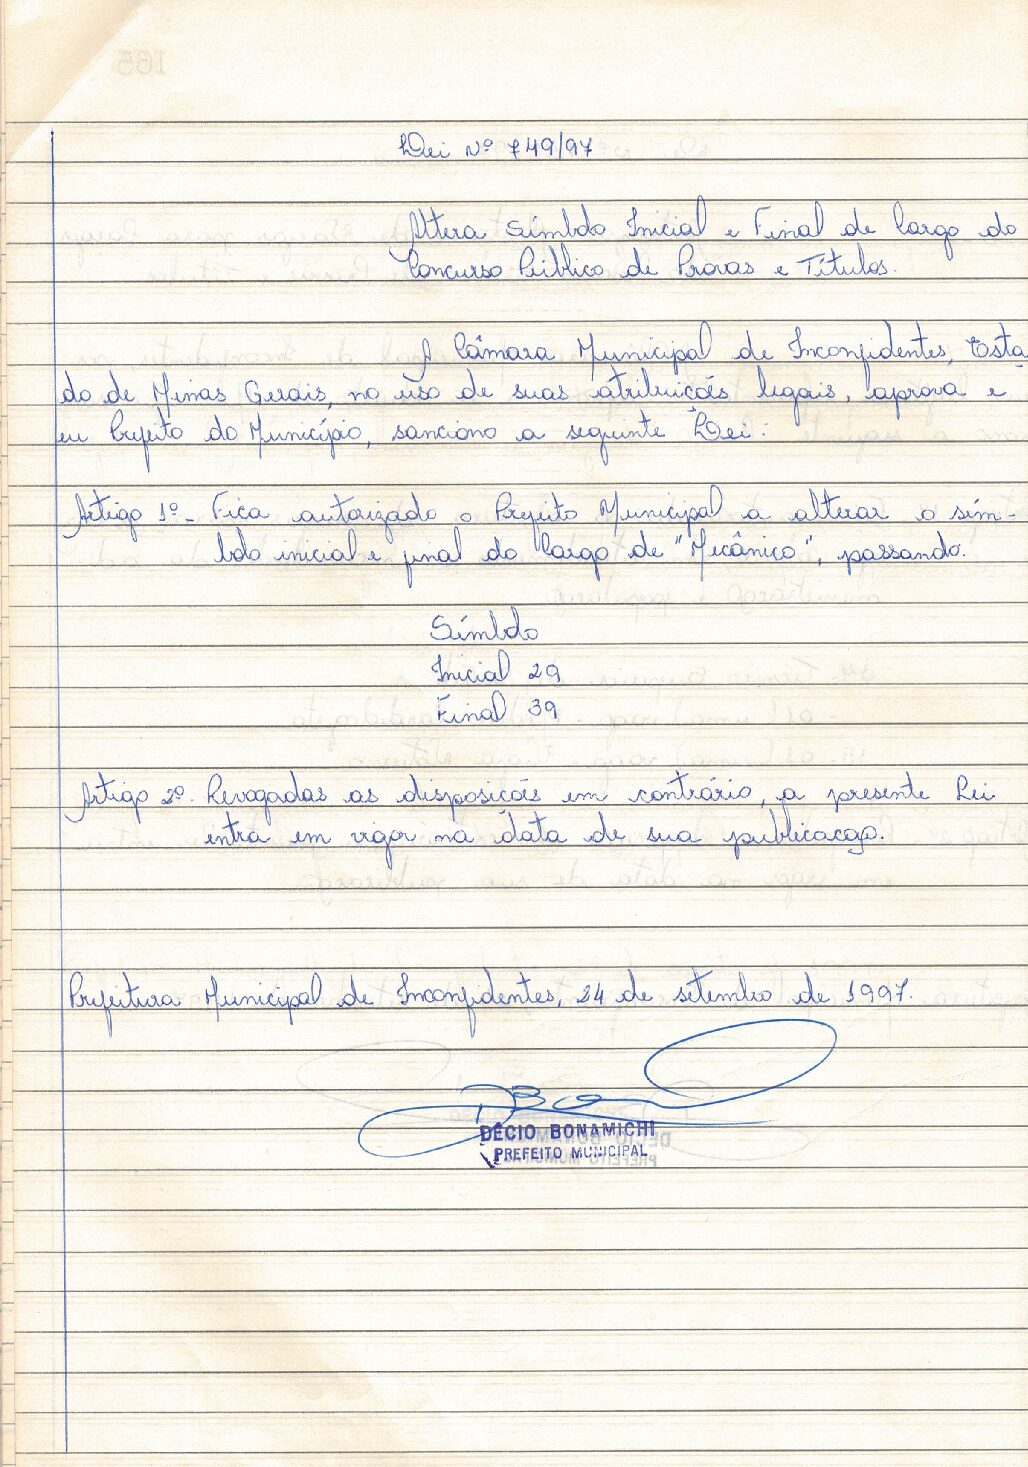 Lei Nº 749/97
Altera Símbolo Inicial e Final de Cargo do
Concurso Público de Provas e Títulos.
A Câmara Municipal de Inconfidentes, Esta
do de Minas Gerais, no uso de suas atribuições legais, aprova e
eu Prefeito do Município, sanciono a seguinte Lei:
Artigo 1º - Fica autorizado o Prefeito Municipal a alterar o sím-
bolo inicial e final do Cargo de "Mecânico", passando.
Símbolo
Inicial 29
Final 39
Artigo 2º. Revogadas as disposições em contrário, a presente Lei
entra em vigor na data de sua publicação.
Prefeitura Municipal de Inconfidentes, 24 de setembro de 1997.
DÉCIO BONAMICHI
PREFEITO MUNICIPAL